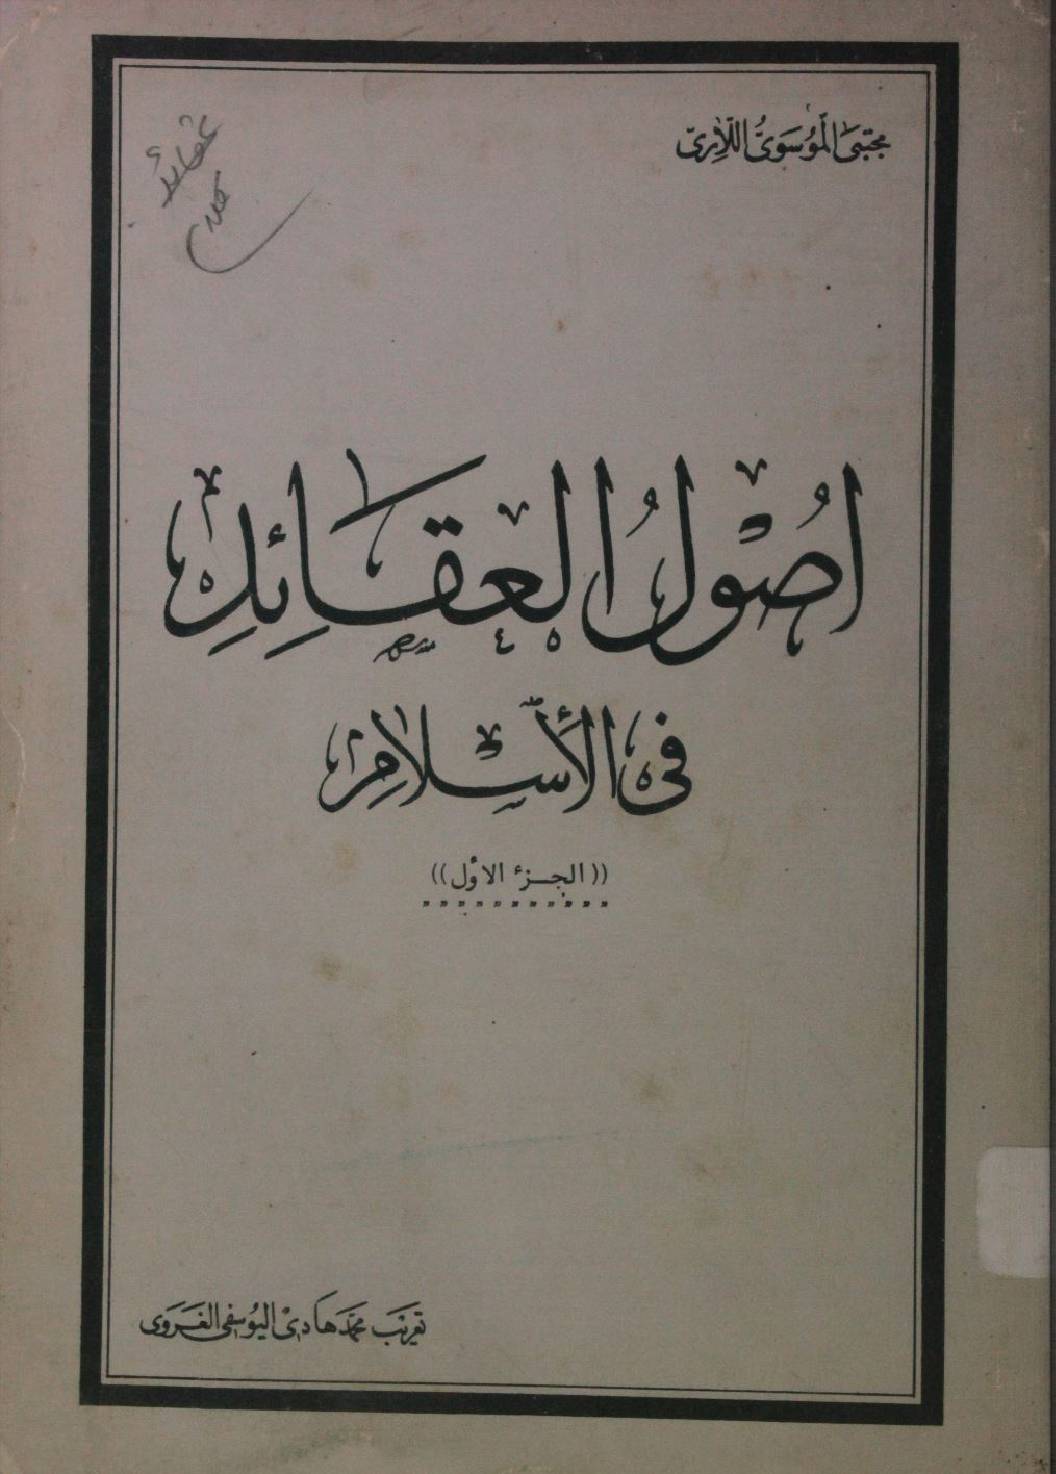 مجتبى الموسوي اللاري
عقائد
اصول العقائد
فى الأسلام
((الجزء الاول))
تعريب محمد هادي اليوسفي الغروى